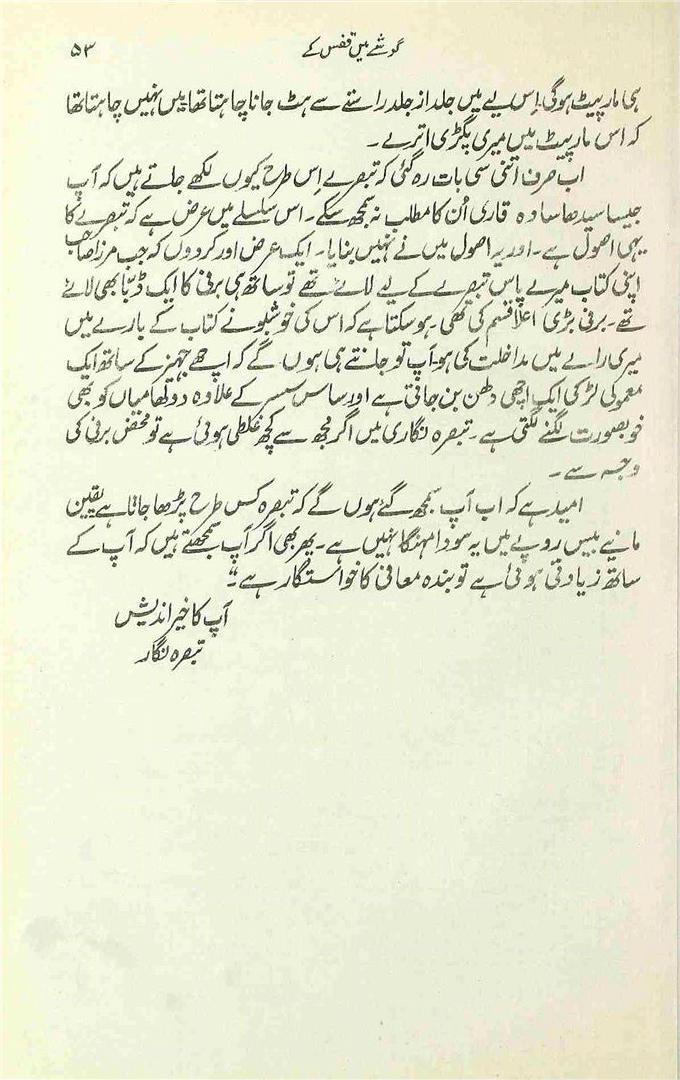 گوشے میں قفس کے ۵۳
ہی مار پیٹ ہوگی۔ اِس لیے میں جلد از جلد راستے سے ہٹ جانا چاہتا تھا میں نہیں چاہتا تھا
کہ اس مار پیٹ میں میری پگڑی اترے۔
اب صرف اتنی سی بات رہ گئی کہ تبصرے اِس طرح کیوں لکھے جاتے ہیں کہ آپ
جیسا سیدھا سادہ قاری اُن کا مطلب نہ سمجھ سکے۔ اس سلسلے میں عرض ہے کہ تبصرے کا
یہی اصول ہے۔ اور یہ اصول میں نے نہیں بنایا۔ ایک عرض اور کر دوں کہ جب مرزا صاحب
اپنی کتاب میرے پاس تبصرے کے لیے لائے تھے تو ساتھ ہی برفی کا ایک ڈبّا بھی لائے
تھے۔ برفی بڑی اعلا قسم کی تھی۔ ہو سکتا ہے کہ اس کی خوشبو نے کتاب کے بارے میں
میری رائے میں مداخلت کی ہو۔ آپ تو جانتے ہی ہوں گے کہ اچھے جہیز کے ساتھ ایک
معمولی لڑکی ایک اچھی دلھن بن جاتی ہے اور ساس سسر کے علاوہ دولھا میاں کو بھی
خوبصورت لگنے لگتی ہے۔ تبصرہ نگاری میں اگر مجھ سے کچھ غلطی ہوئی ہے تو محض برفی کی
وجہ سے۔
امید ہے کہ اب آپ سمجھ گئے ہوں گے کہ تبصرہ کس طرح پڑھا جاتا ہے یقین
مانیے بیس روپے میں یہ سودا مہنگا نہیں ہے۔ پھر بھی اگر آپ سمجھتے ہیں کہ آپ کے
ساتھ زیادتی ہوئی ہے تو بندہ معافی کا خواستگار ہے۔"
آپ کا خیر اندیش
تبصرہ نگار